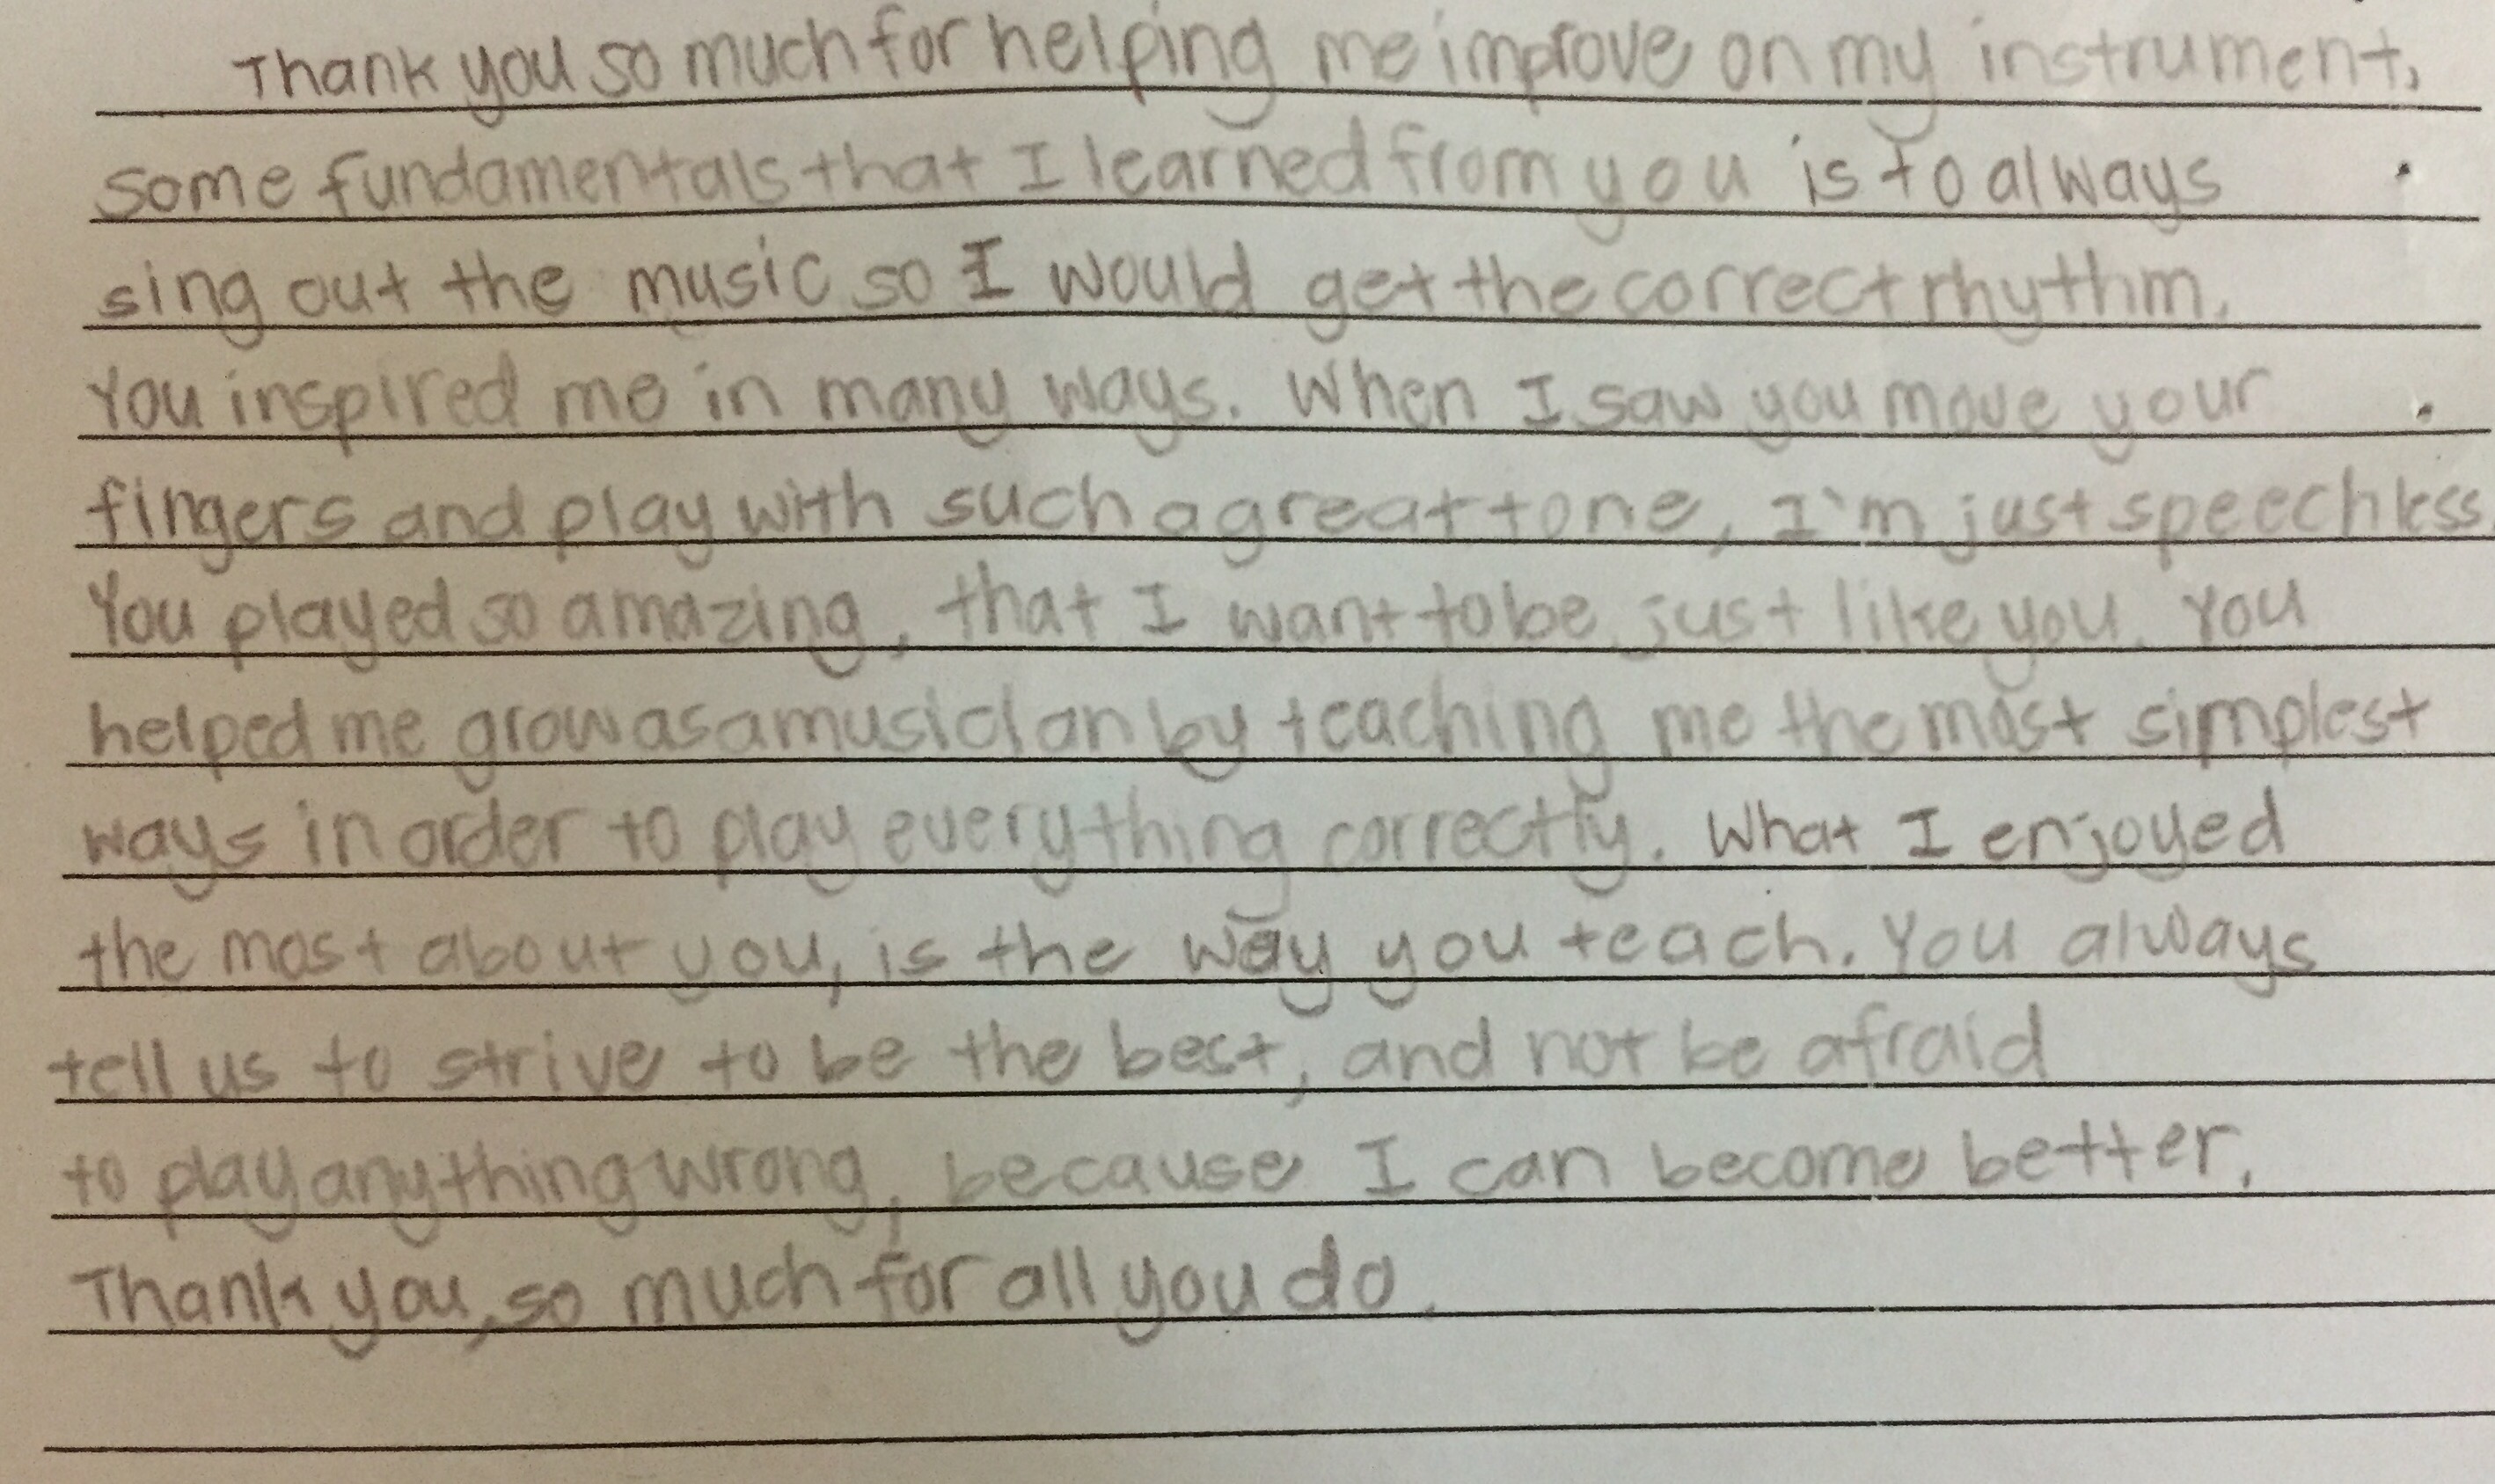 Thank you so much for helping me improve on my instrument.
Some fundamentals that I learned from you is to always
sing out the music so I would get the correct rhythm.
You inspired me in many ways. When I saw you move your
fingers and play with such a great tone, I'm just speechless.
You played so amazing, that I want to be just like you. You
helped me grow as a musician by teaching me the most simplest
ways in order to play everything correctly. What I enjoyed
the most about you, is the way you teach. You always
tell us to strive to be the best, and not be afraid
to play anything wrong, because I can become better.
Thank you, so much for all you do.